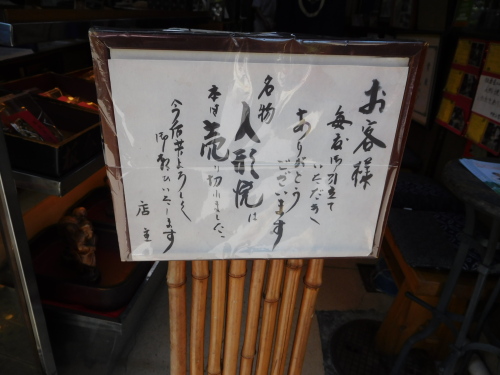 お客様
毎度お引立て
いただき
ありがとう
ございます
名物
人形焼は
本日売り切れました。
今后共よろしく
御願いいたします
店主